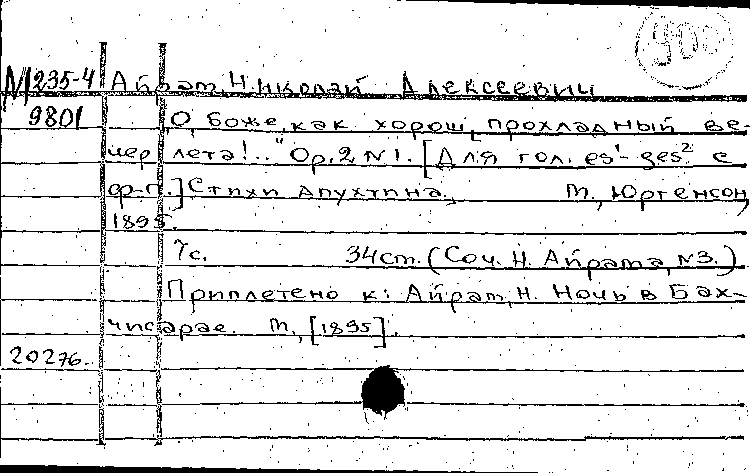 900
М235-4 Айрат, Н. Николай Алексеевич
9801 „О, Боже, как хорош, прохладный ве-
чер лета!.." Op. 2, N 1. [Для гол. es¹- ges² с
ф-п.] Стихи Апухтина. М., Юргенсон,
1895.
7с. 34 cm. (Соч. Н. Айрата, N3.)
Приплетено к: Айрат, Н. Ночь в Бах-
чисарае. М., [1895].
20276.